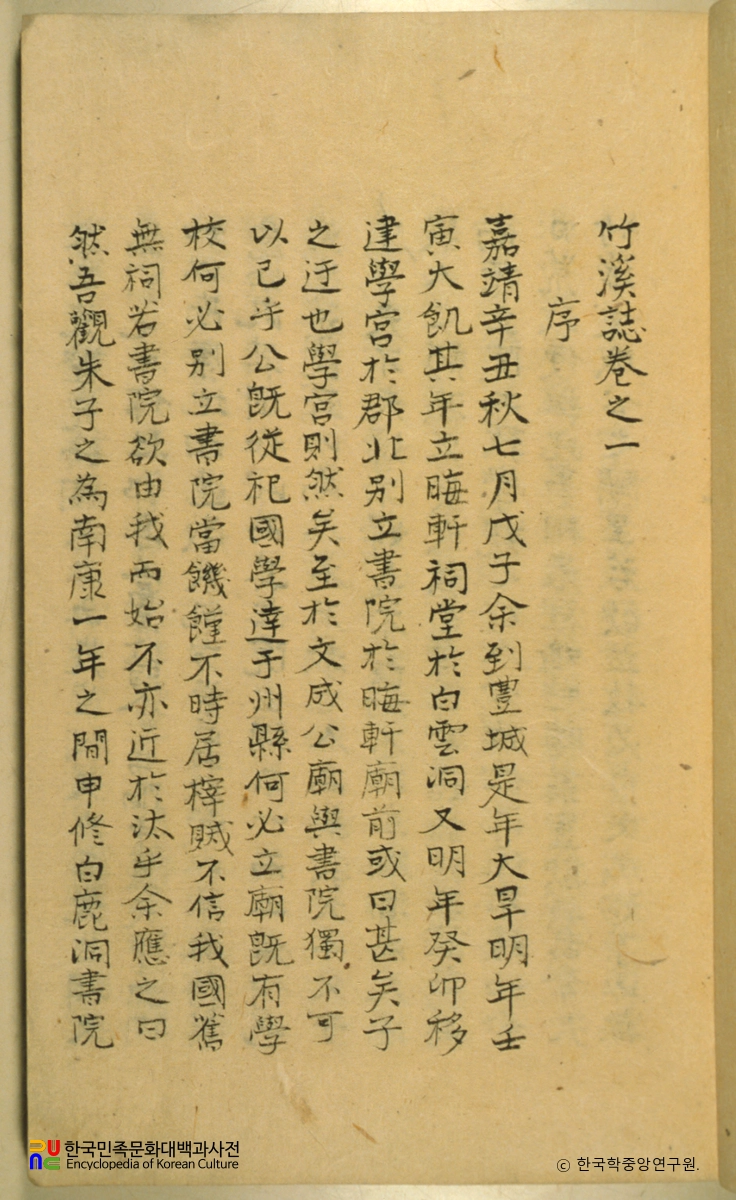 竹溪誌卷之一
序
嘉靖辛丑秋七月戊子余到豊城是年大旱明年壬
寅大飢其年立晦軒祠堂於白雲洞又明年癸卯移
建學宮於郡北別立書院於晦軒廟前或曰甚矣子
之迂也學宮則然矣至於文成公廟與書院獨不可
以已乎公旣從祀國學達于州縣何必立廟旣有學
校何必別立書院當饑饉不時居𢓡不信我國舊
無祠若書院欲由我而始不亦近於汰乎余應之曰
然吾觀朱子之為南康一年之間申修白鹿洞書院
한국민족문화대백과사전
Encyclopedia of Korean Culture
© 한국학중앙연구원.